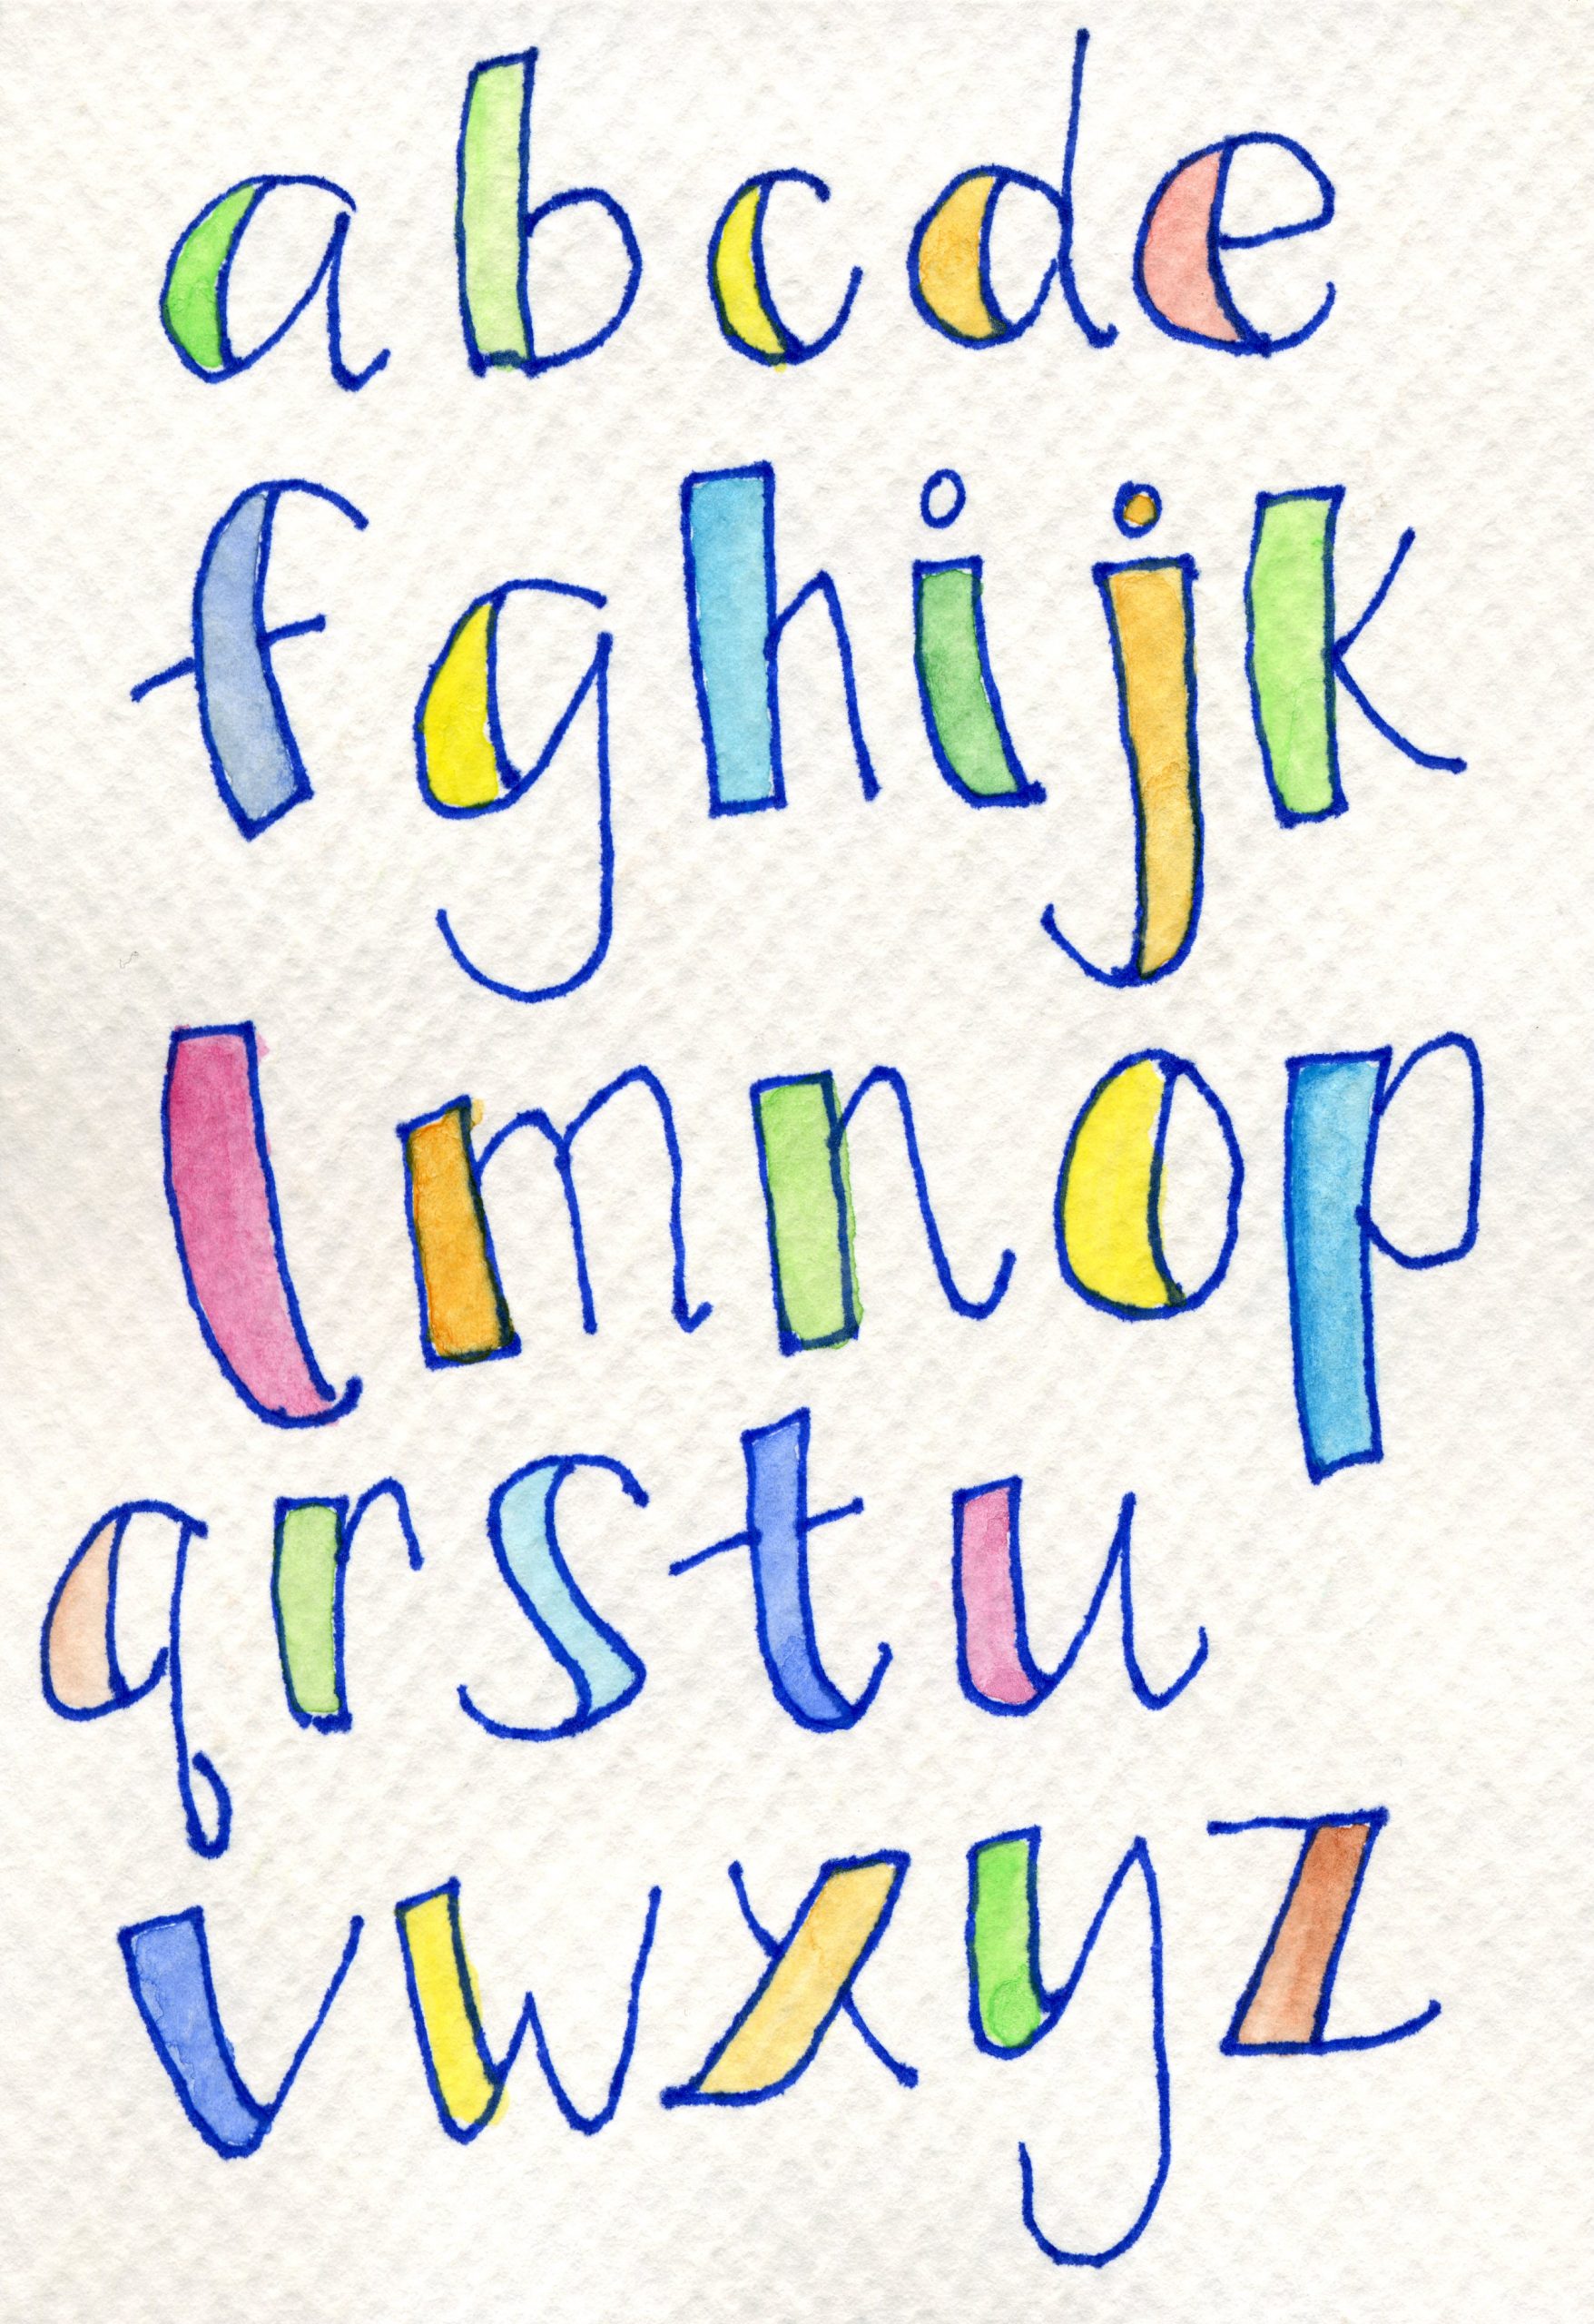 abcde
fghijk
lmnop
qrstu
vwxyz